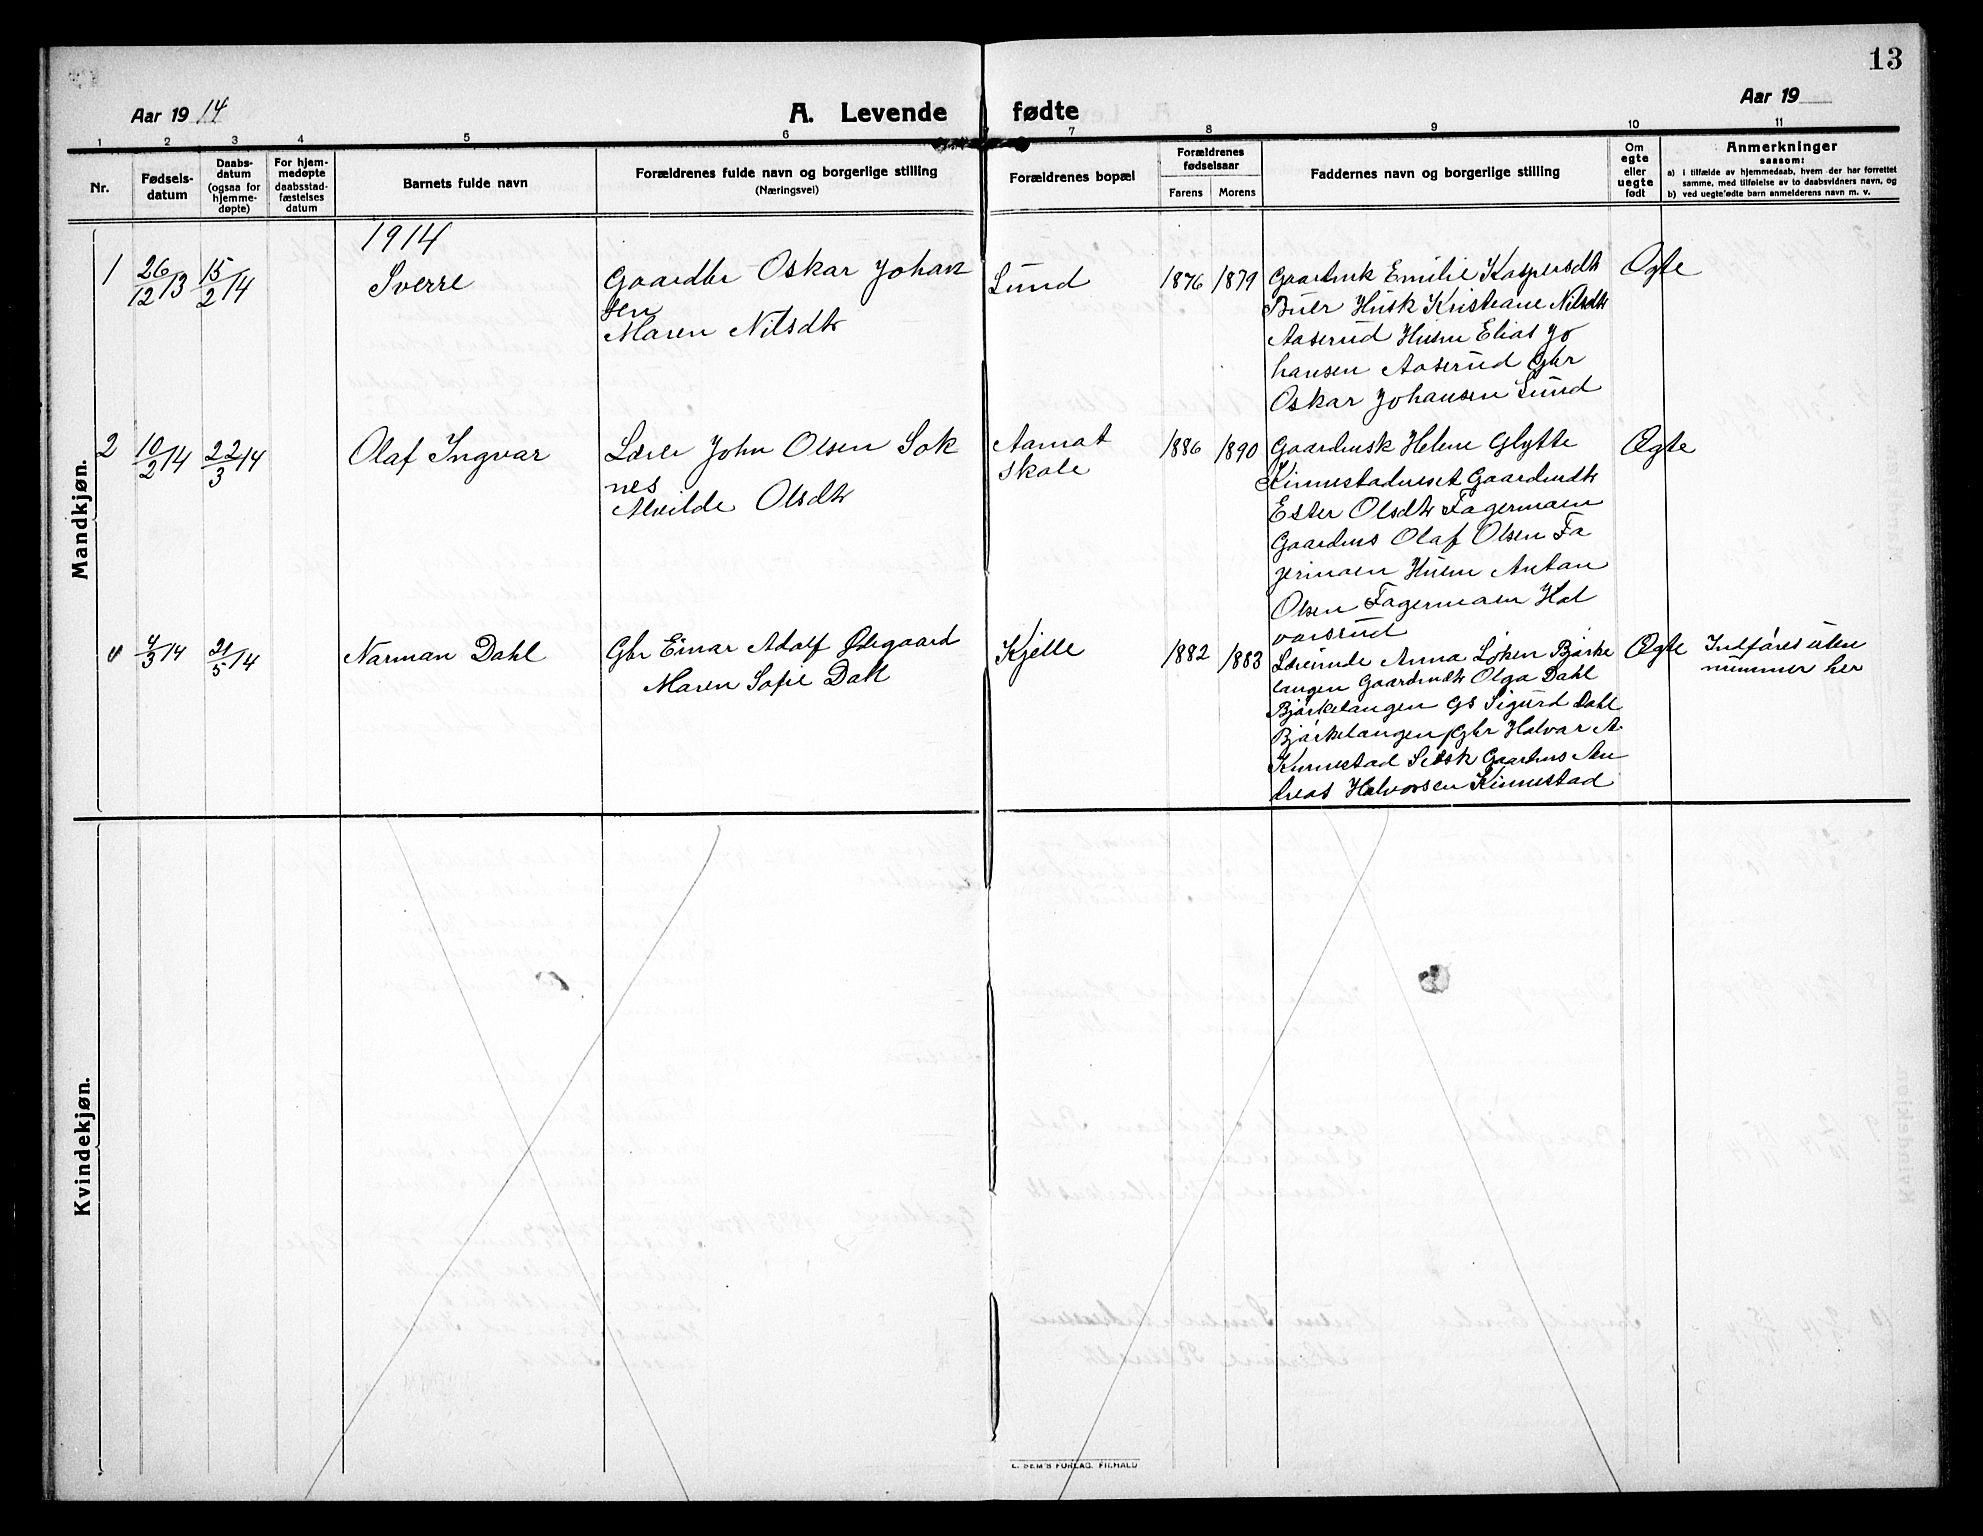 13
Aar 1914
A. Levende fødte
Aar 19
1 2 3 4 5 6 7 8 9 10 11
Nr.
Fødsels-
datum
Daabs-
datum
(ogsaa for
hjemme-
døpte)
For hjem-
medøpte
daabsstad-
fæstelses
datum
Barnets fulde navn
Forældrenes fulde navn og borgerlige stilling
(Næringsvei)
Forældrenes bopæl
Forældrenes
fødselsaar
Farens Morens
Faddernes navn og borgerlige stilling
Om
egte
eller
uegte
født
Anmerkninger
saasom:
a) i tilfælde av hjemmedaab, hvem der har forrettet
samme, med tilføielse av to daabsvidners navn, og
b) ved uegte fødte barn anmelderens navn m. v.
Mandkjøn.
1914
1
26/12 13
15/2 14
Sverre
Gaardbr Oskar Johan
sen
Maren Nilsdtr
Lund
1876 1879
Gaardmk Emilie Kaspersdtr
Buer Husk Kristiane Nilsdtr
Aaserud Husm Elias Jo
hansen Aaserud Gbr
Oskar Johansen Lund
Ægte
2
10/2 14
22/3 14
Olaf Ingvar
Lærer John Olsen Sok
nes
Alvilde Olsdtr
Aamot
skole
1886 1890
Gaardmsk Helene Glytte
Kinnestadneset Gaardmdtr
Ester Olsdtr Fagermoen
Gaardms Olaf Olsen Fa
germoen Husm Anton
Olsen Fagermoen Hal
vorsrud
Ægte
4/3 14
21/5 14
Narman Dahl
Gbr Einar Adolf Ødegaard
Maren Sofie Dahl
Kjelle
1882 1883
Lærerinde Anna Løken Bjørke
langen Gaardmdtr Olga Dahl
Bjørkelangen GS Sigurd Dahl
Bjørkelangen Gbr Halvor A.
Kinnestad Setsk Gaardms An
dreas Halvorsen Kinnestad
Ægte
Indføres uten
nummer her
Kvindekjøn.
E. SEM'S FORLAG, FR.HALD